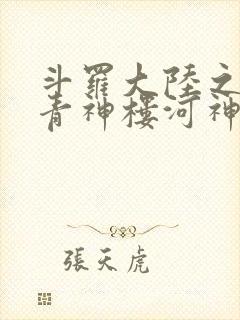 斗羅大陸之
青神樓河神
張天虎